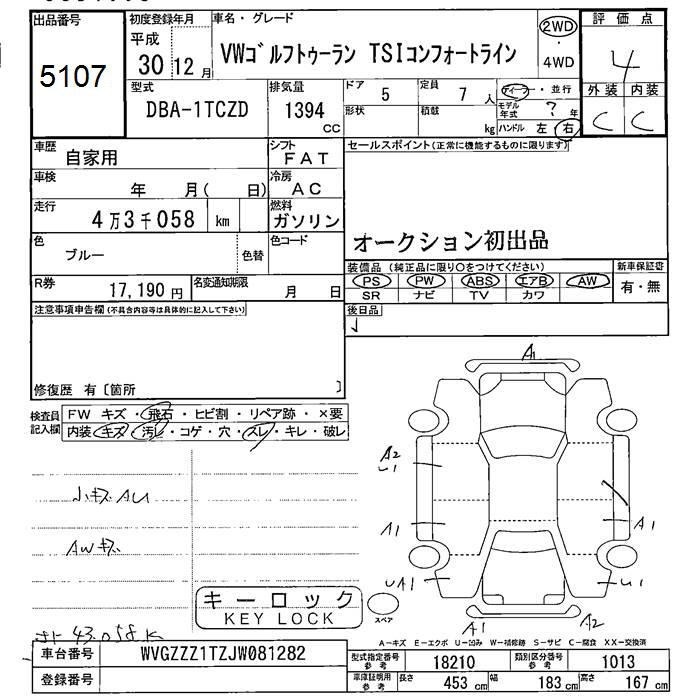 出品番号 5107
初度登録年月 平成 30 12 月
車名・グレード VWゴルフトゥーラン TSIコンフォートライン
2WD・4WD
評価点 4
外装 C 内装 C
型式 DBA-1TCZD
排気量 1394 cc
ドア 5
定員 7 人
形状
積載 kg
ディーラー・並行
モデル年式 ? 年
ハンドル 左 右
車歴 自家用
シフト FAT
セールスポイント(正常に機能するものに限ります)
車検 年 月( 日)
冷房 AC
走行 4万3千058 km
燃料 ガソリン
オークション初出品
色 ブルー 色替
色コード
装備品(純正品に限り○をつけてください)
新車保証書
PS PW ABS エアB AW
SR ナビ TV カワ
有・無
R券 17,190 円
名変通知期限 月 日
後日品
注意事項申告欄(不具合内容等は具体的に記入して下さい)
修復歴 有〔箇所 〕
検査員記入欄
FW キズ・飛石・ヒビ割・リペア跡・×要
内装 キズ・汚レ・コゲ・穴・スレ・キレ・破レ
A1
A2
U1
小キズ AU
A1
A1
AWキズ
UA1
U1
キーロック
KEY LOCK
スペア
A1
A2
43.058 K
A－キズ E－エクボ U－凹み W－補修跡 S－サビ C－腐食 XX－交換済
車台番号 WVGZZZ1TZJW081282
型式指定番号 参考 18210
類別区分番号 参考 1013
登録番号
車庫証明用 参考 長さ 453 cm 幅 183 cm 高さ 167 cm